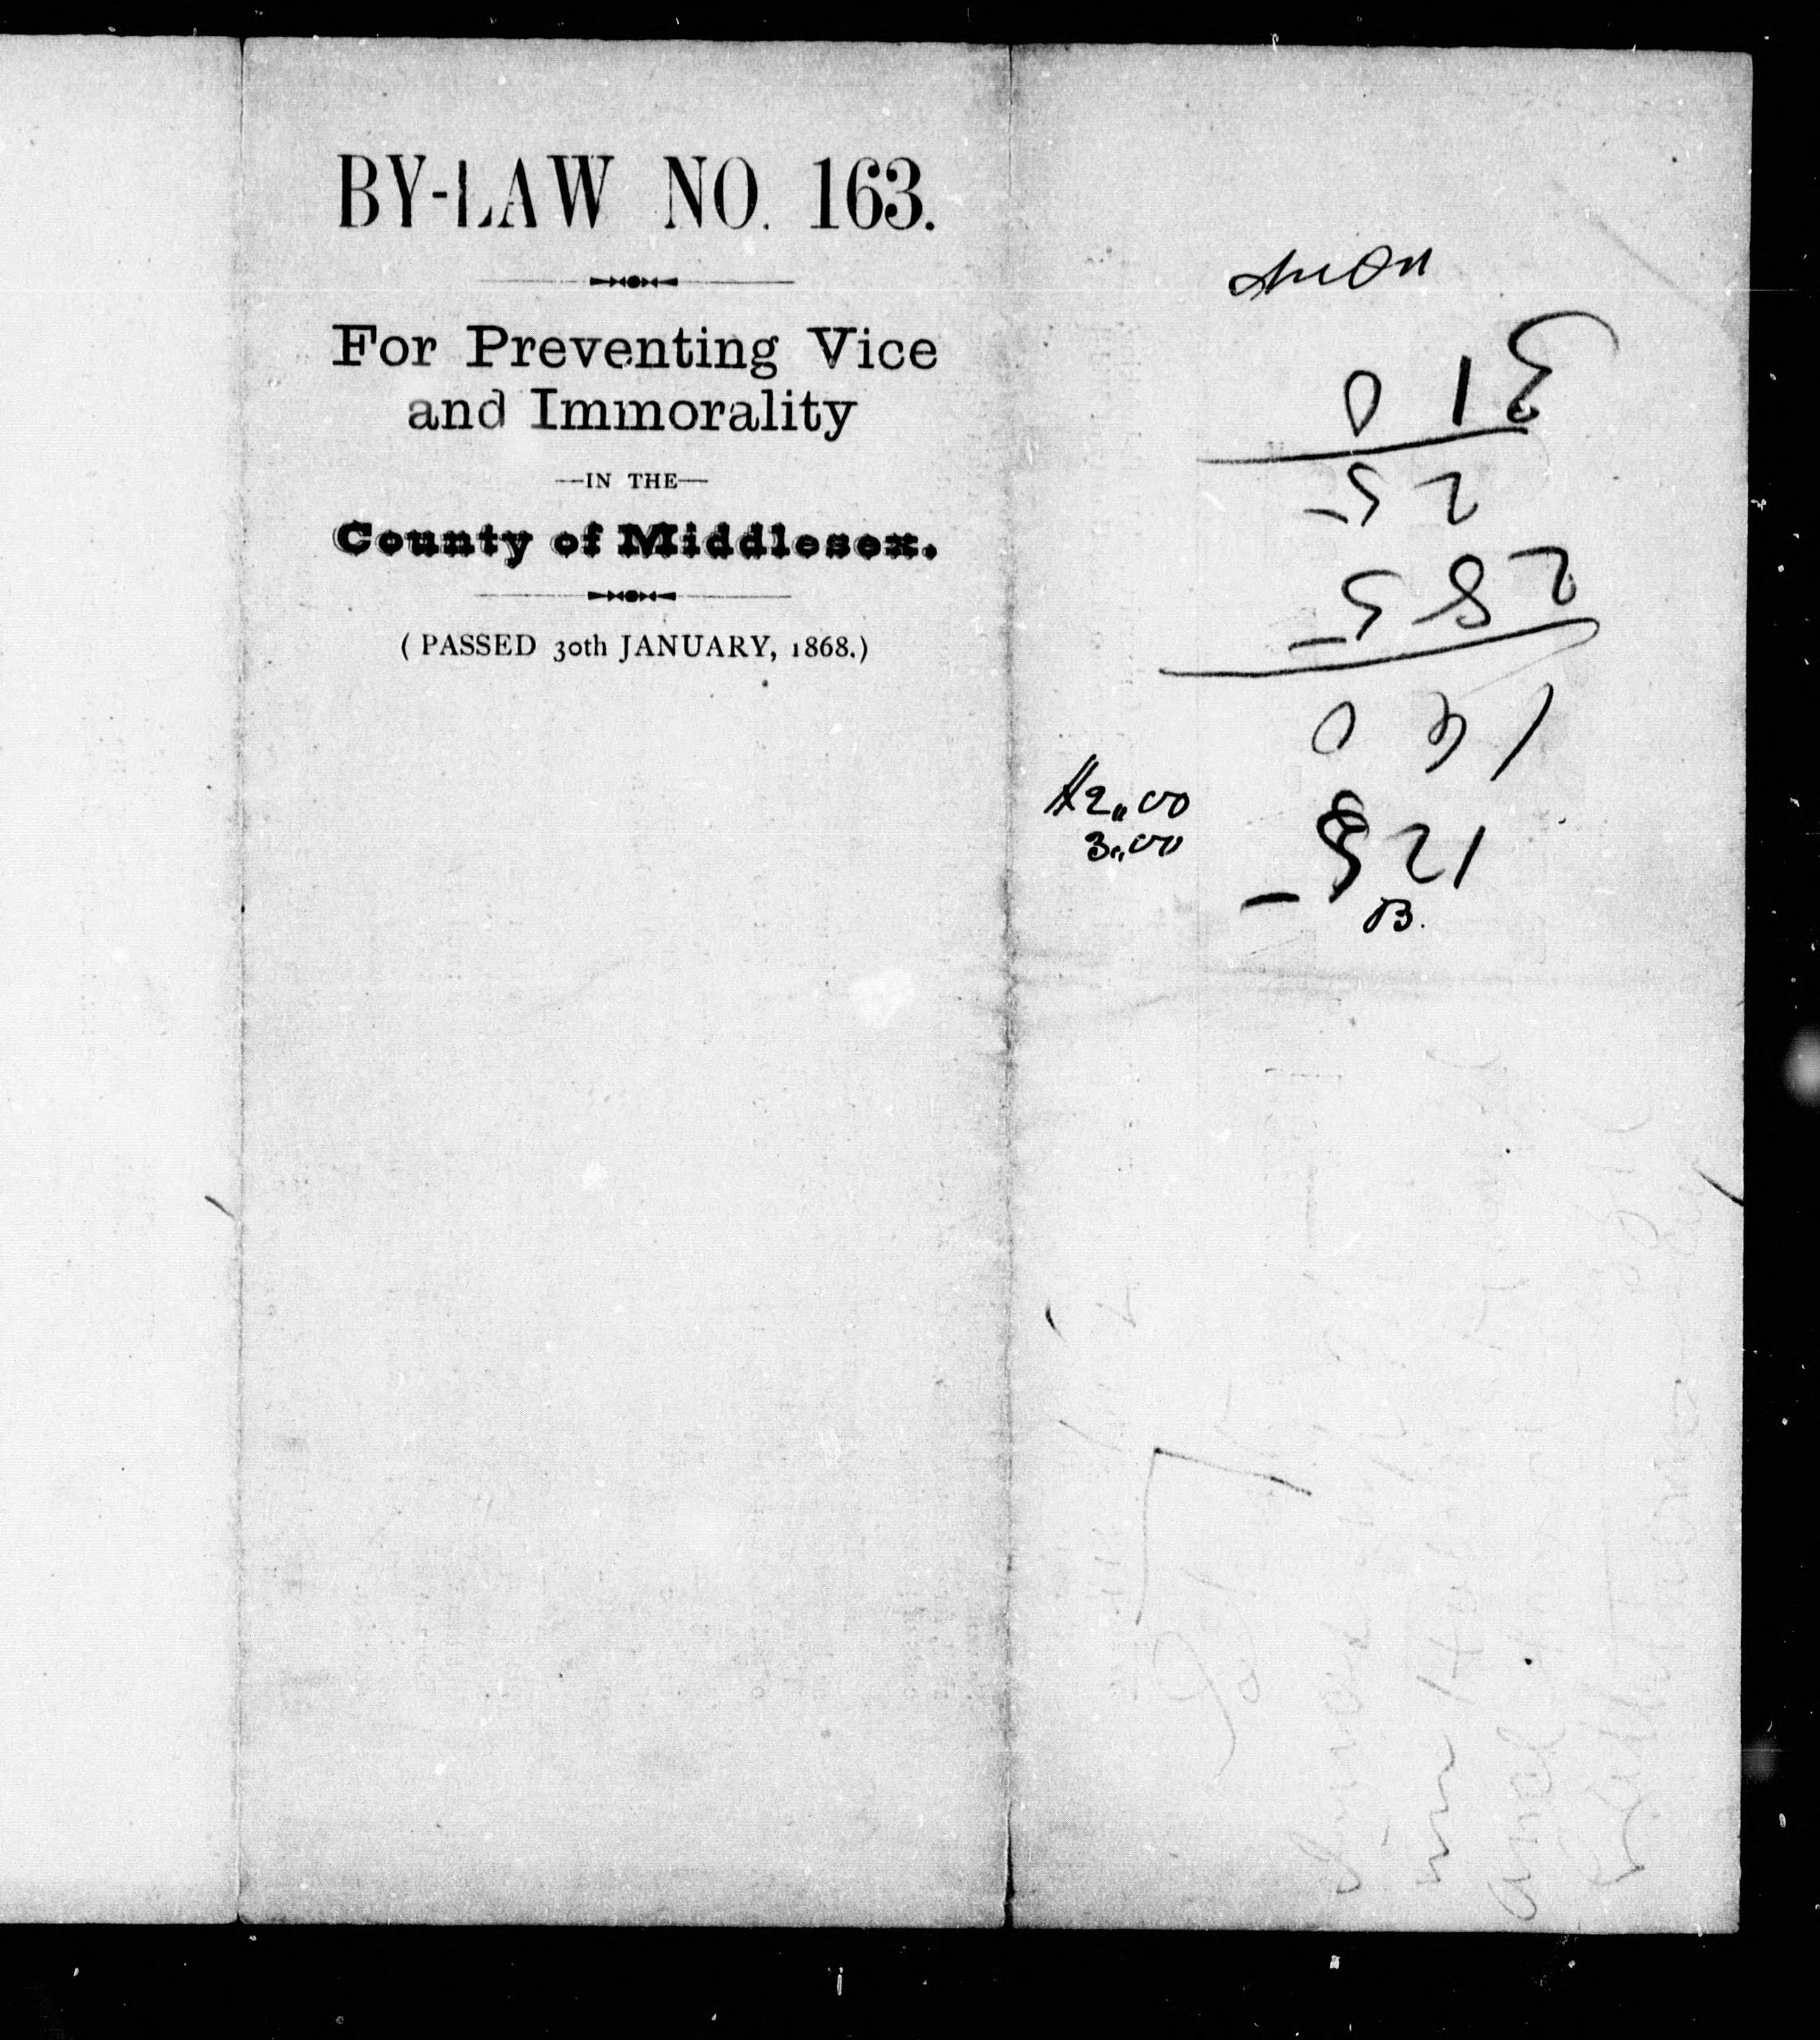 BY-LAW NO. 163.
For Preventing Vice
and Immorality
—IN THE—
County of Middlesex.
( PASSED 30th JANUARY, 1868.)
2,,00
3,,00
B.
125
160
285
25
310